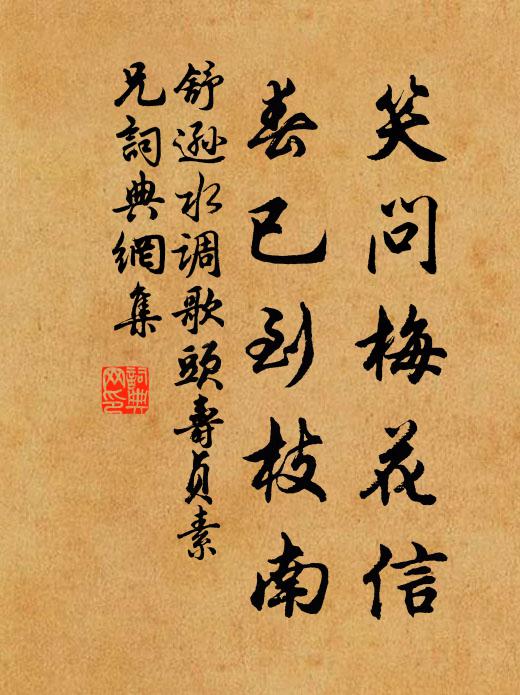 笑问梅花信
春已到枝南
舒逊水调歌头寿贞素
兄词典网集
词典
网印